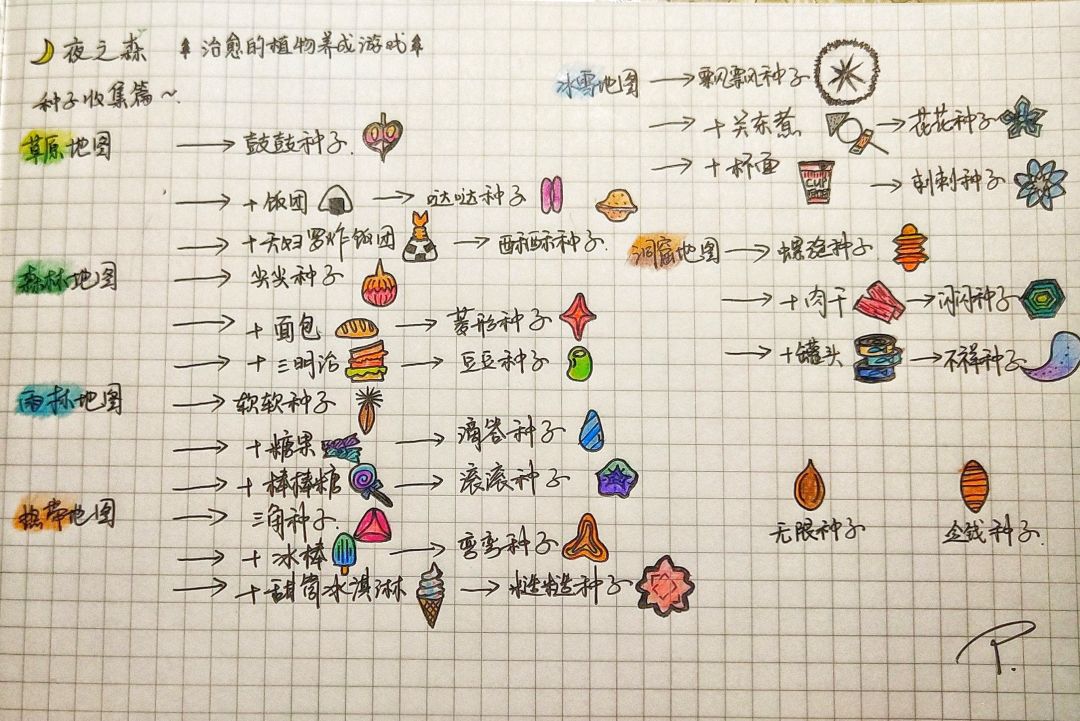 夜之森 *治愈的植物养成游戏*
种子收集篇~
草原地图 → 鼓鼓种子.
→ +饭团 → 哒哒种子
→ +天妇罗炸饭团 → 酥酥种子.
森林地图 → 尖尖种子
→ +面包 → 菱形种子
→ +三明治 → 豆豆种子
雨林地图 → 软软种子
→ +糖果 → 滴答种子
→ +棒棒糖 → 滚滚种子
热带地图 → 三角种子.
→ +冰棒 → 弯弯种子
→ +甜筒冰淇淋 → 糙糙种子
冰雪地图 → 飘飘种子
→ +关东煮 → 花花种子
→ +杯面 → 刺刺种子
CUP
洞窟地图 → 螺旋种子
→ +肉干 → 闪闪种子
→ +罐头 → 不祥种子
无限种子 金钱种子.
P.